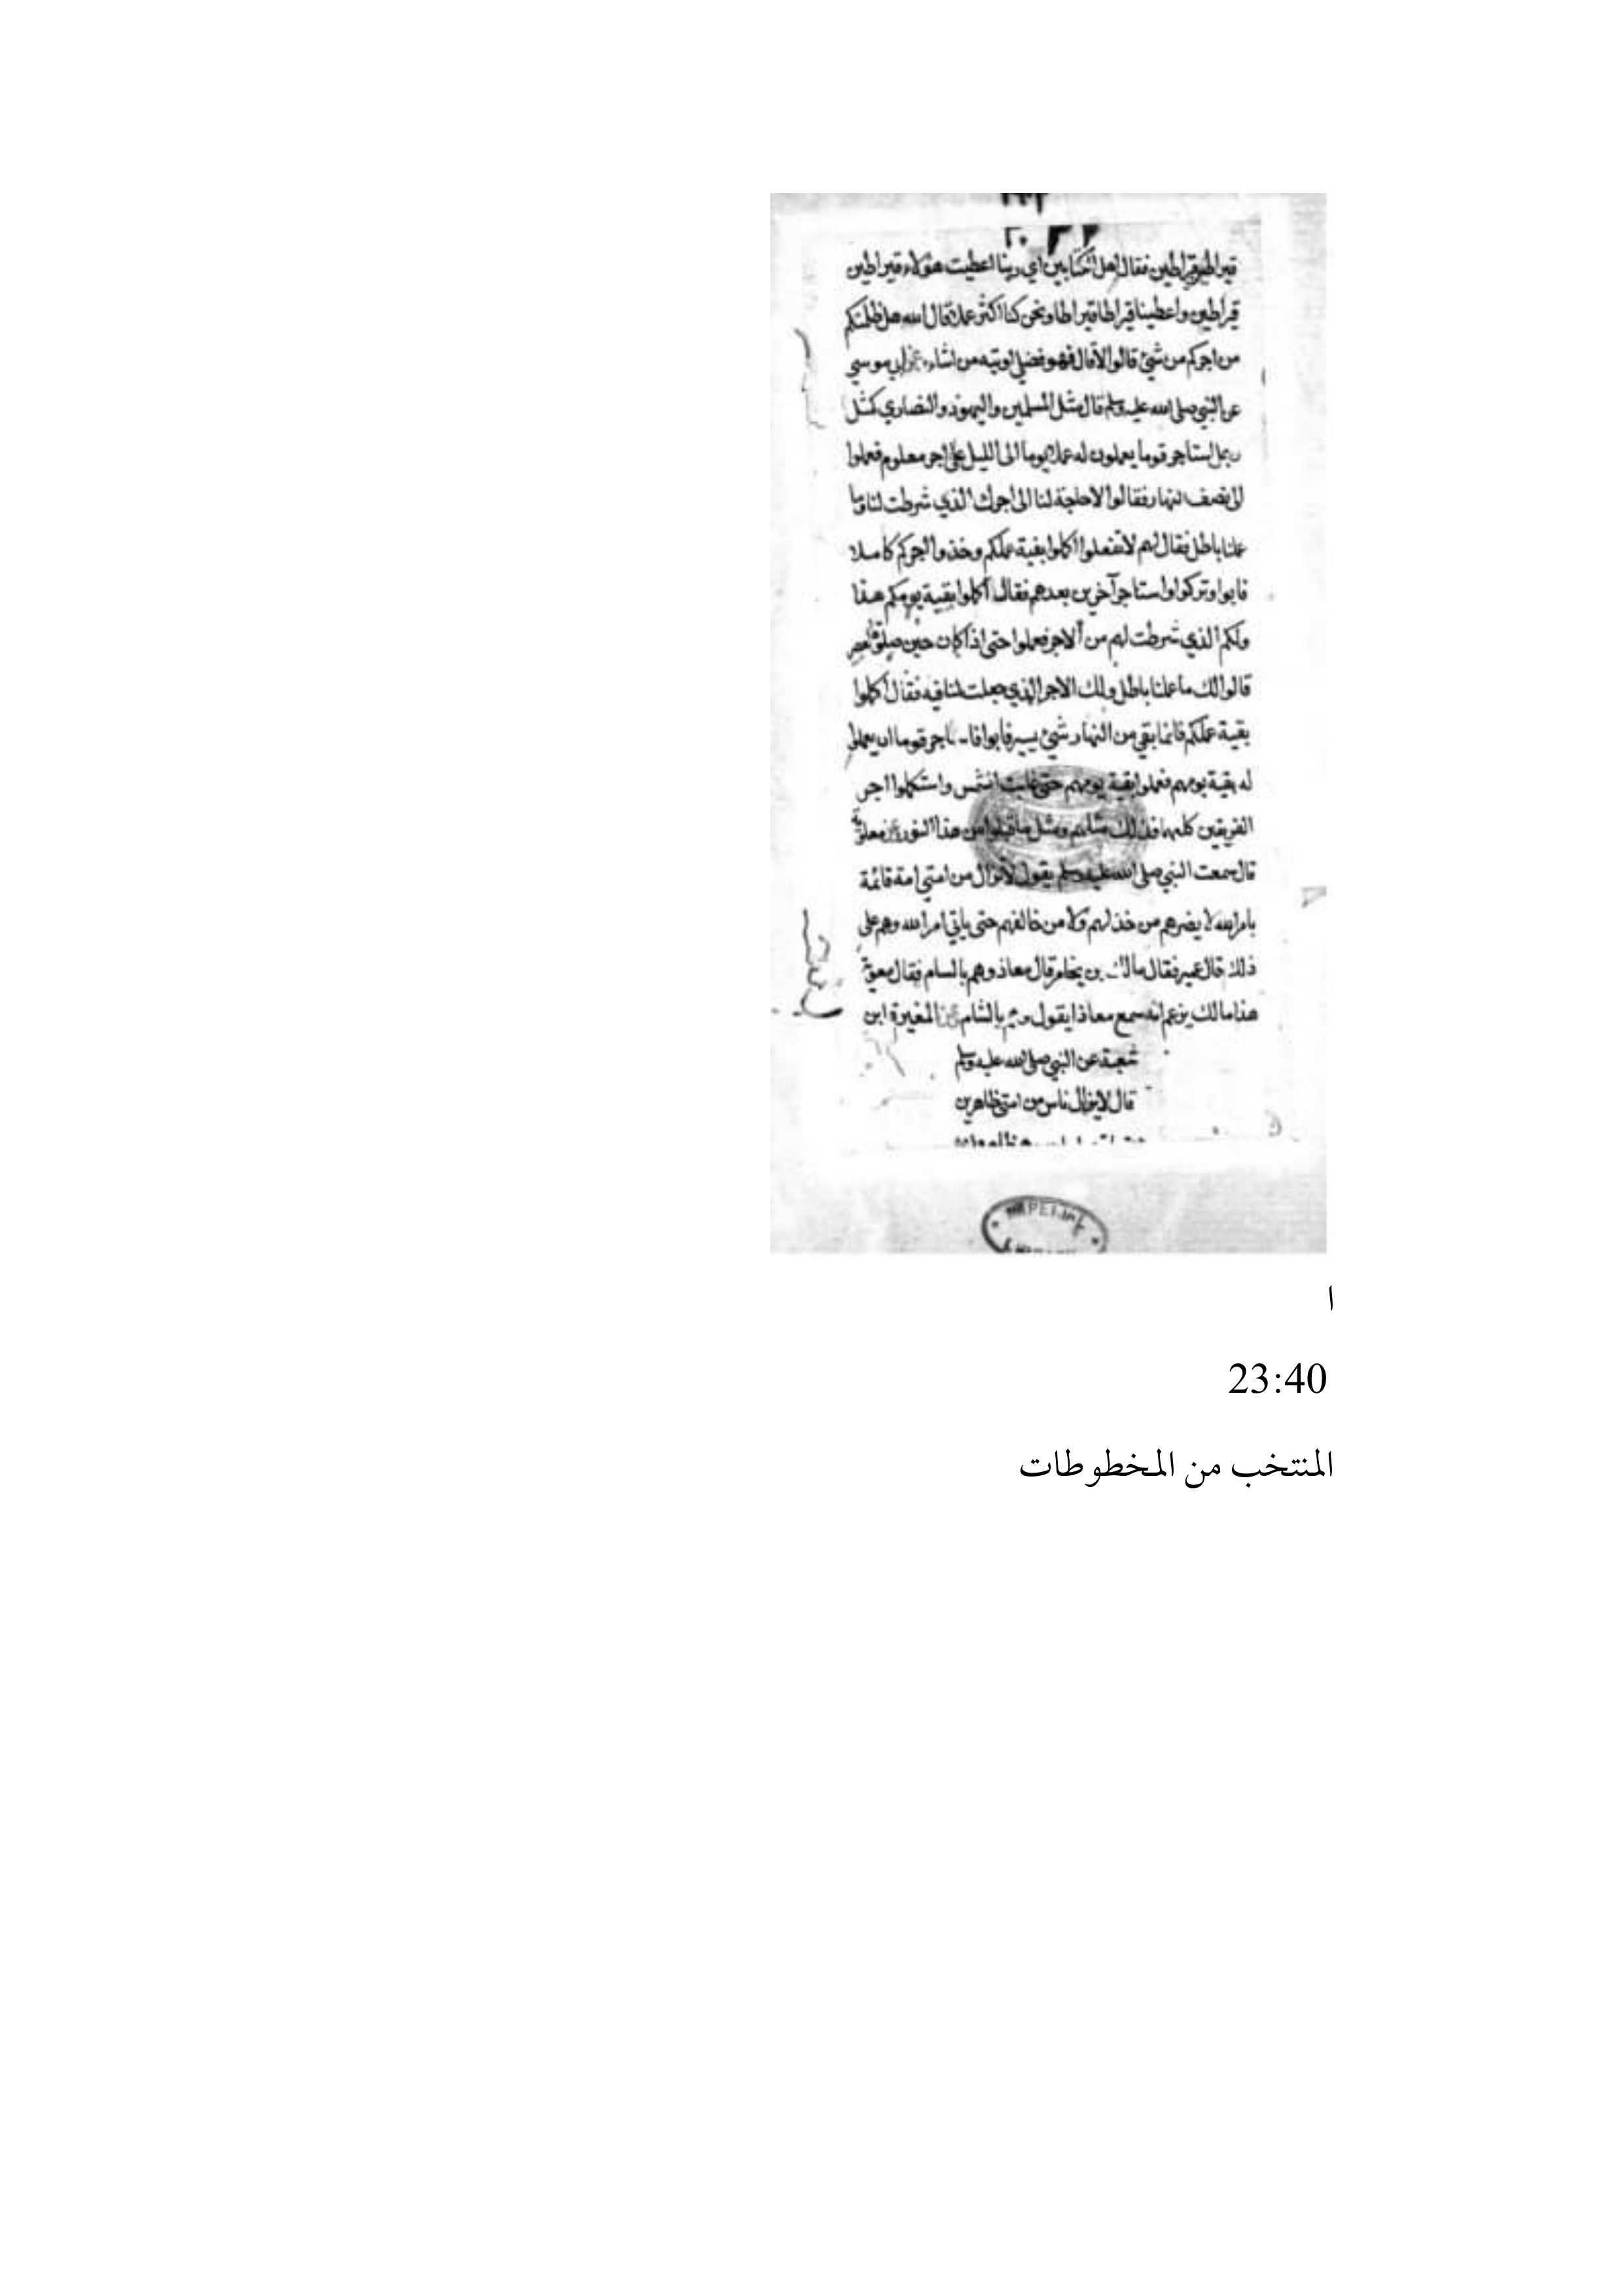 قيراطين قيراطين فقال اهل الكتابين اي ربنا اعطيت هؤلاء قيراطين
قيراطين واعطيتنا قيراطا قيراطا ونحن كنا اكثر عملا قال الله هل ظلمتكم
من اجركم من شئ قالوا لا قال فهو فضلي اوتيه من اشاء عن ابي موسي
عن النبي صلى الله عليه وسلم قال مثل المسلمين واليهود والنصاري كمثل
رجل استاجر قوما يعملون له عملا يوما الى الليل على اجر معلوم فعملوا
الى نصف النهار فقالوا لا حاجة لنا الى اجرك الذي شرطت لنا وما
عملنا باطل فقال لهم لا تفعلوا اكملوا بقية عملكم وخذوا اجركم كاملا
فابوا وتركوا واستاجر آخرين بعدهم فقال اكملوا بقية يومكم هذا
ولكم الذي شرطت لهم من الاجر فعملوا حتى اذا كان حين صلوة العصر
قالوا لك ما عملنا باطل ولك الاجر الذي جعلت لنا فيه فقال اكملوا
بقية عملكم فانما بقي من النهار شئ يسير فابوا فاستاجر قوما ان يعملوا
له بقية يومهم فعملوا بقية يومهم حتى غابت الشمس واستكملوا اجر
الفريقين كليهما فذلك مثلهم ومثل ما قبلوا من هذا النور عن معاوية
قال سمعت النبي صلى الله عليه وسلم يقول لا تزال من امتي امة قائمة
بامر الله لا يضرهم من خذلهم ولا من خالفهم حتى ياتي امر الله وهم على
ذلك قال عمير فقال مالك بن يخامر قال معاذ وهم بالشام فقال معوية
هذا مالك يزعم انه سمع معاذا يقول وهم بالشام عن المغيرة ابن
شعبة عن النبي صلى الله عليه وسلم
قال لا يزال ناس من امتي ظاهرين
ا
23:40
المنتخب من المخطوطات